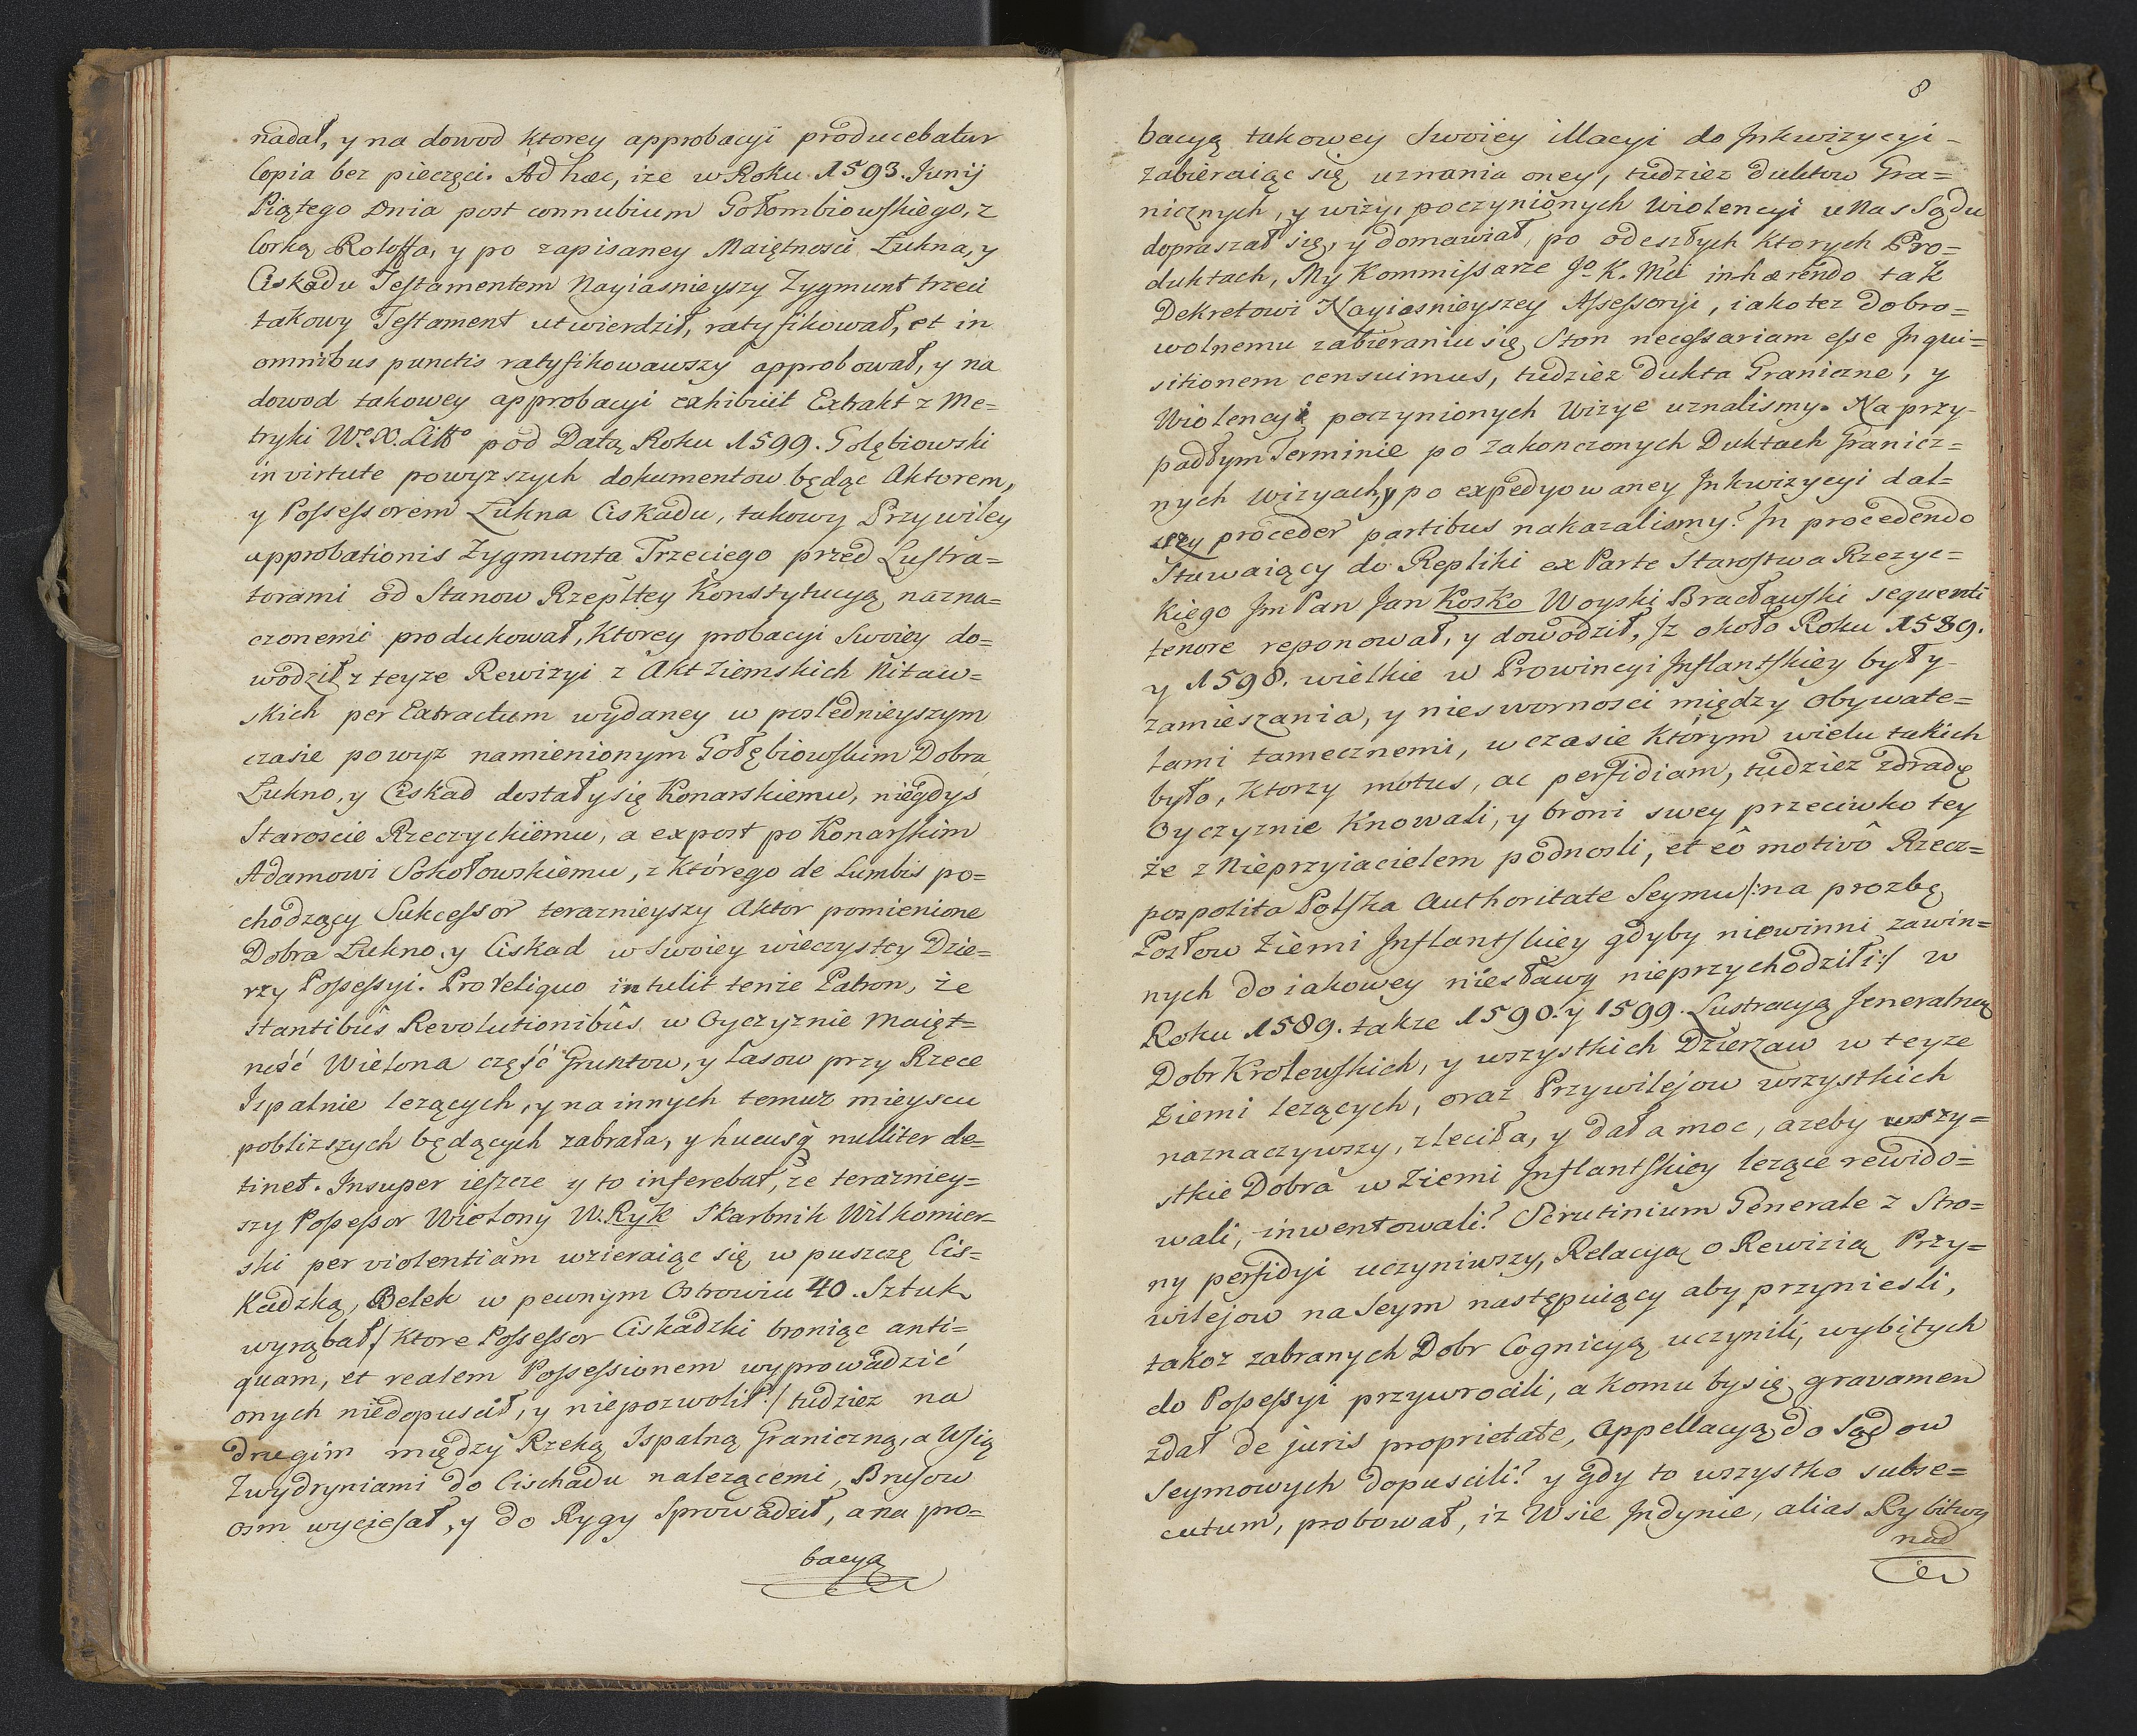 nadał, y na dowod ktorey approbacyi producebatur
Copia bez pieczęci. Ad hæc, iże w Roku 1593. Junij
Piątego Dnia post connubium Gołombiowskiego, z
Corką Roloffa, y po zapisaney Maiętnosci Łukna, y
Ciskadu Testamentem Nayiasnieyszy Zygmunt trzeci
takowy Testament utwierdził, ratyfikował, et in
omnibus punctis ratyfikowawszy approbował, y na
dowod takowey approbacyi exhibuit Extrakt z Me=
tryki W.o X. Litt.o pod Datą Roku 1599. Golębiowski
in virtute powyższych dokumentow będąc Aktorem,
y Possessorem Łukna Ciskadu, takowy Przywiley
approbationis Zygmunta Trzeciego przed Lustra=
torami od Stanow Rzepltey Konstytucyą nazna=
czonemi produkował, ktorey probacyi Swoiey do=
wodził z teyże Rewizyi z Akt Ziemskich Nitaw=
skich per Extractum wydaney w poslednieyszym
czasie powyż namienionym Gołębiowskim Dobra
Łukno, y Ciskad dostały się Konarskiemu, niegdys
Staroscie Rzeczyckiemu, a expost po Konarskim
Adamowi Sokołowskiemu, z Którego de Lumbis po=
chodzący Sukcessor teraznieyszy Aktor pomienione
Dobra Łukno, y Ciskad w Swoiey wieczystey Dzie=
rzy Possessyi. Pro reliquo intulit tenże Patron, że
stantibûs Revolutionibûs w Oyczyznie Maięt=
ność Wielona część Gruntow, y Lasow przy Rzece
Ispalnie leżących, y na innych temuż mieyscu
poblizszych będących zabrała, y hucusq nulliter de=
tinet. Insuper ieszcze y to inferebat, że teraźniey=
szy Possessor Wielony W. Ryk Skarbnik Wiłkomier=
ski per violentiam wzieraiąc się w puszczę Cis=
Kadzką, Belek w pewnym Ostrowiu 40. Sztuk
wyrąbał/ Ktore Possessor Ciskadzki broniąc anti=
quam, et realem Possessionem wyprowadzić
onych niedopuscił, y niepozwolił:/ tudziez na
drugim między Rzeką Ispalną Graniczną, a Wsią
Zwydryniami do Cischadu należącemi, Brusow
osm wyciesał, y do Rygy Sprowadził, a na pro=
bacyą
8
bacyą takowey Swoiey illacyi do Inkwizycyi
zabieraiąc się uznania oney, tudziez duktow Gra=
nicznych, y wizyi poczynionych Wiolencyi u Nas Sądu
dopraszał się, y domawiał, po odeszłych ktorych Pro=
duktach, My Kommissarze Jo K. Mci inhærendo tak
Dekretowi Nayiasnieyszey Assessoryi, iakotez dobro=
wolnemu zabieraniu się Ston necessariam esse Inqui=
sitionem censuimus, tudziez Dukta Graniczne, y
Wiolencyi poczynionych Wizye uznalismy. Na przy=
padłym Terminie po zakonczonych Duktach Granicz=
nych wizyach, y po expedyowaney Inkwizycyi dal=
szy proceder partibus nakazalismy? In procedendo
Stawaiący do Repliki ex Parte Starostwa Rzezyc=
kiego Jm Pan Jan Kosko Woyski Bracławski sequenti
tenore reponował, y dowodził, Iz około Roku 1589.
y 1598. wielkie w Prowincyi Inflantskiey były
zamieszania, y nieswornosci między Obywate=
lami tamecznemi, w czasie którym wielu takich
było, Ktorzy motus, ac perfidiam, tudzież zdradę
Oyczyznie Knowali, y broni swey przeciwko tey
że z Nieprzyiacielem podnosli, et eô motivô Rzecz=
pospolita Polska Authoritate Seymu/: na prozbę
Posłow Ziemi Inflantskiey gdyby niewinni zawin=
nych do iakowey niesławy nieprzychodzili:/ w
Roku 1589. takze 1590. y 1599. Lustracyą Jeneralną
Dobr Krolewskich, y wszystkich Dzierzaw w teyze
Ziemi leżących, oraz Przywilejow wszystkich
naznaczywszy, zleciła, y dała moc, azeby wszy=
stkie Dobra w Ziemi Inflantskiey leząće rewido=
wali, inwentowali? Scrutinium Generale z Stro=
ny perfidyi uczyniwszy, Relacyą o Rewizią Przy=
wilejow na Seym następuiący aby przyniesli,
takoz zabranych Dobr Cognicyą uczynili, wybitych
do Possessyi przywrocili, a komu by się gravamen
zdał de juris proprietate, Appellacyą do Sądow
Seymowych dopuscili? y gdy to wszystko subse=
cutum, probował, iz Wsie Indynie, alias Rybitwy
nad